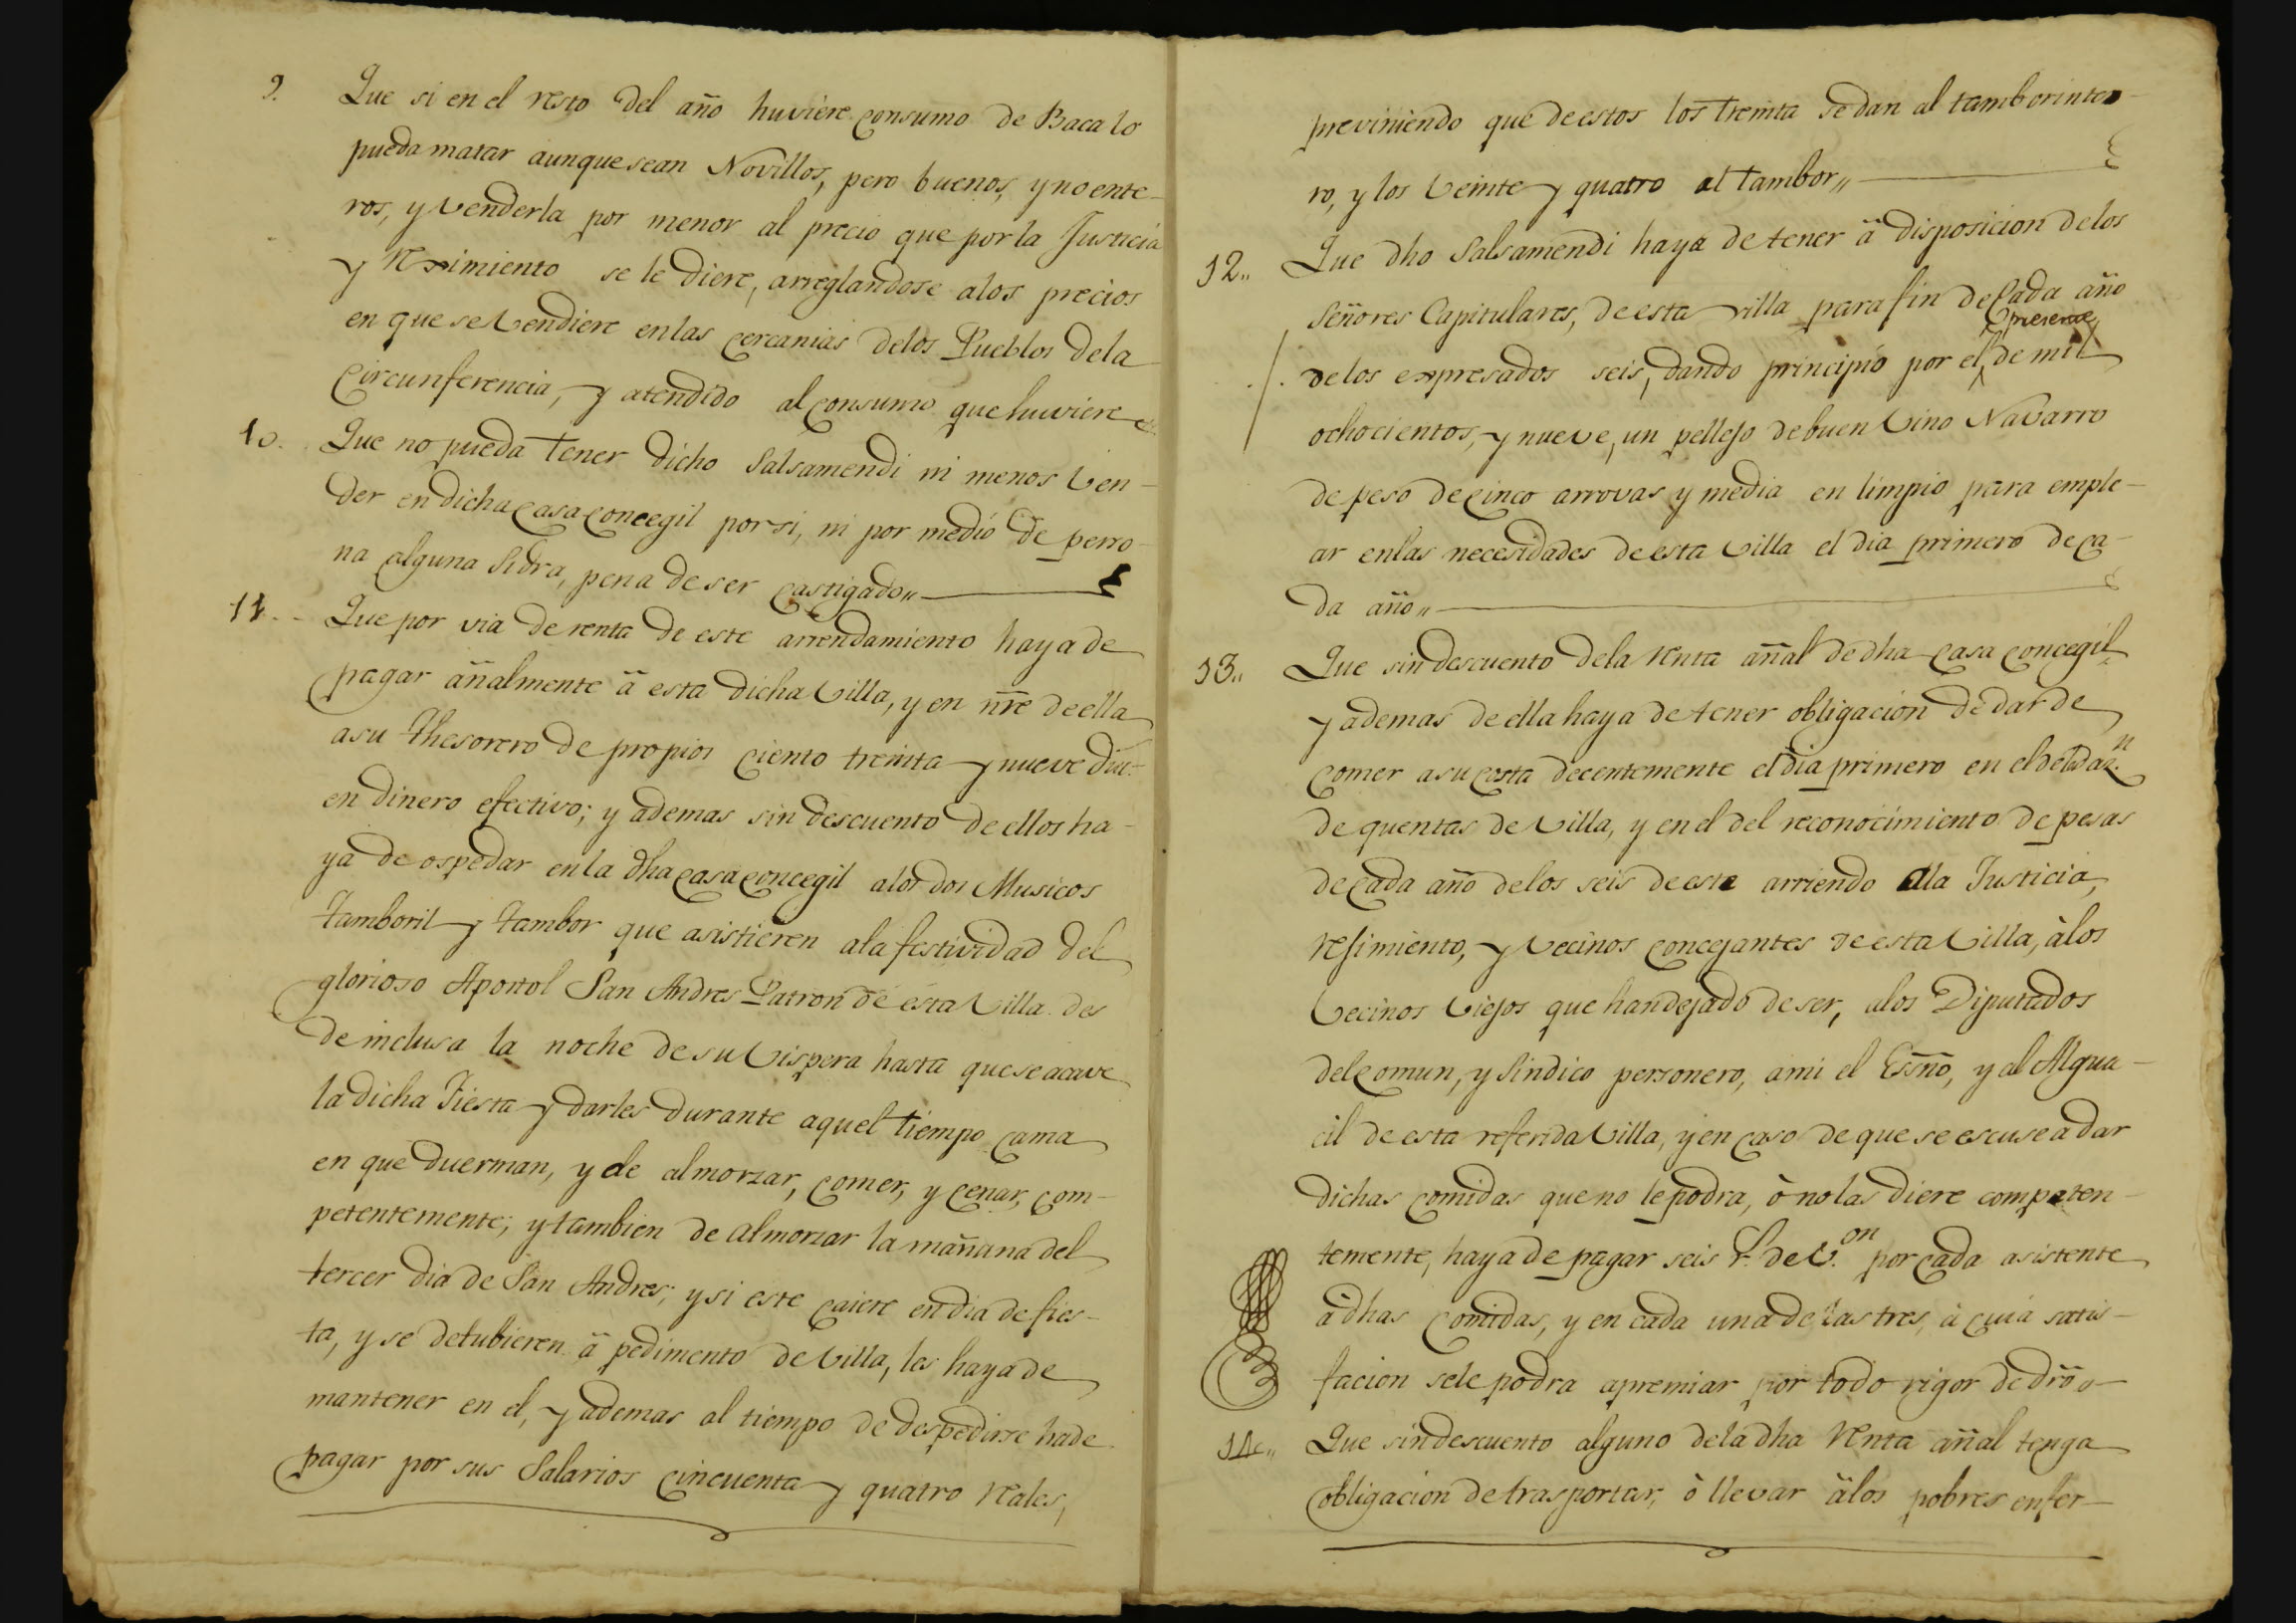 9. Que si en el resto del año huviere consumo de Baca lo
pueda matar aunque sean Novillos, pero buenos, y no ente-
ros, y venderla por menor al precio que por la Justicia
y Reximiento se le diere, arreglandose a los precios
en que se vendiere en las cercanias de los Pueblos de la
circunferencia, y atendido al consumo que huviere
10. Que no pueda tener dicho Salsamendi ni menos ven-
der en dicha casa concegil por si, ni por medio de perso-
na alguna Sidra, pena de ser castigado,,
11. Que por via de renta de este arrendamiento haya de
pagar añalmente â esta dicha villa, y en nre de ella
a su Thesorero de propios ciento treinta y nueve du.
en dinero efectivo; y ademas sin descuento de ellos ha-
ya de ospedar en la dha casa concegil a los dos Musicos
Tamboril y Tambor que asistieren a la festividad del
glorioso Apostol San Andres Patron de esta villa des
de inclusa la noche de su vispera hasta que se acave
la dicha Fiesta y darles durante aquel tiempo cama
en que duerman, y de almorzar, comer, y cenar, com-
petentemente; y tambien de almorzar la mañana del
tercer dia de San Andres; y si este caiere en dia de fies-
ta, y se detubieren â pedimento de villa, les haya de
mantener en el, y ademas al tiempo de despedirse ha de
pagar por sus Salarios cincuenta y quatro reales,
previniendo que de estos los treinta se dan al tamborinte-
ro, y los veinte y quatro al tambor,,
12,, Que dho Salsamendi haya de tener â disposicion de los
Señores Capitulares, de esta villa para fin de cada año
de los expresados seis, dando principio por el presente de mil
ochocientos, y nueve, un pellejo de buen vino Navarro
de peso de cinco arrovas y media en limpio para emple-
ar en las necesidades de esta villa el dia primero de ca-
da año,,
13,, Que sin descuento de la renta añal de dha casa concegil
y ademas de ella haya de tener obligacion de dar de
comer a su costa decentemente el dia primero en el de
de quentas de villa, y en el del reconocimiento de pesas
de cada año de los seis de este arriendo a la Justicia,
resimiento, y vecinos concejantes de esta villa, à los
vecinos viejos que han dejado de ser, a los Diputados
del comun, y Sindico personero, a mi el Essño, y al Algua-
cil de esta referida villa, y en caso de que se escuse a dar
dichas comidas que no le podra, ò no las diere competen-
temente, haya de pagar seis rs. de v.on por cada asistente
à dhas comidas, y en cada una de las tres, à cuia satis-
facion se le podra apremiar por todo rigor de dro,,
14,, Que sin descuento alguno de la dha renta añal tenga
obligacion de trasportar, ò llevar à los pobres enfer-